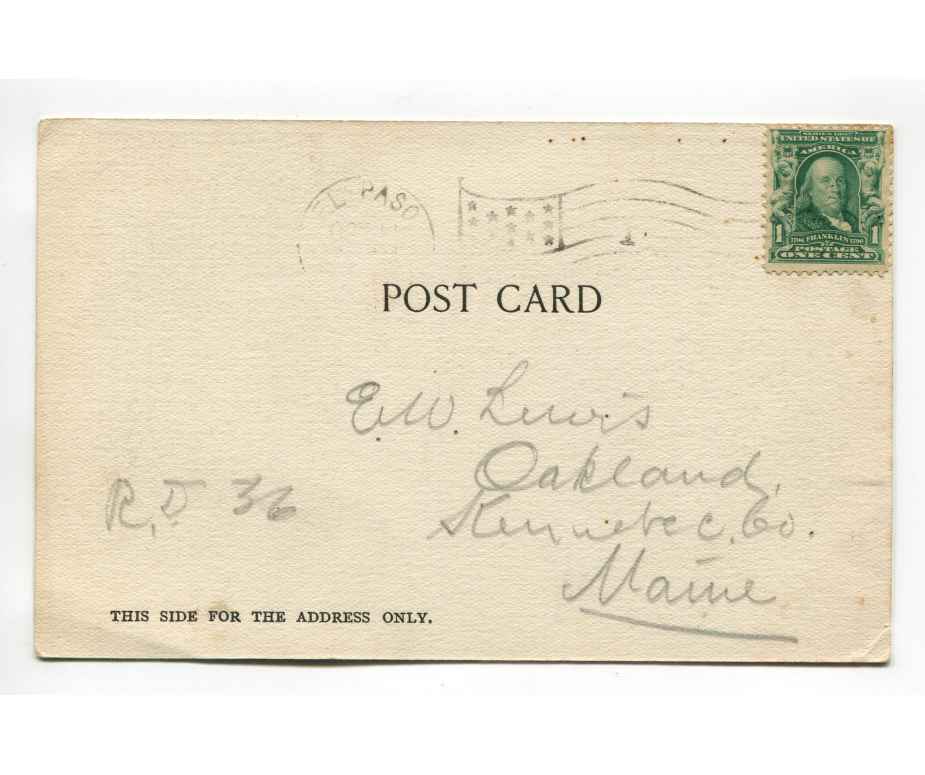 EL PASO
SERIES 1902
UNITED STATES OF
AMERICA
1 1706 FRANKLIN 1790 1
POSTAGE
ONE CENT
POST CARD
E.W. Lewis
Oakland,
Kennebec. Co.
Maine
R.D 36
THIS SIDE FOR THE ADDRESS ONLY.